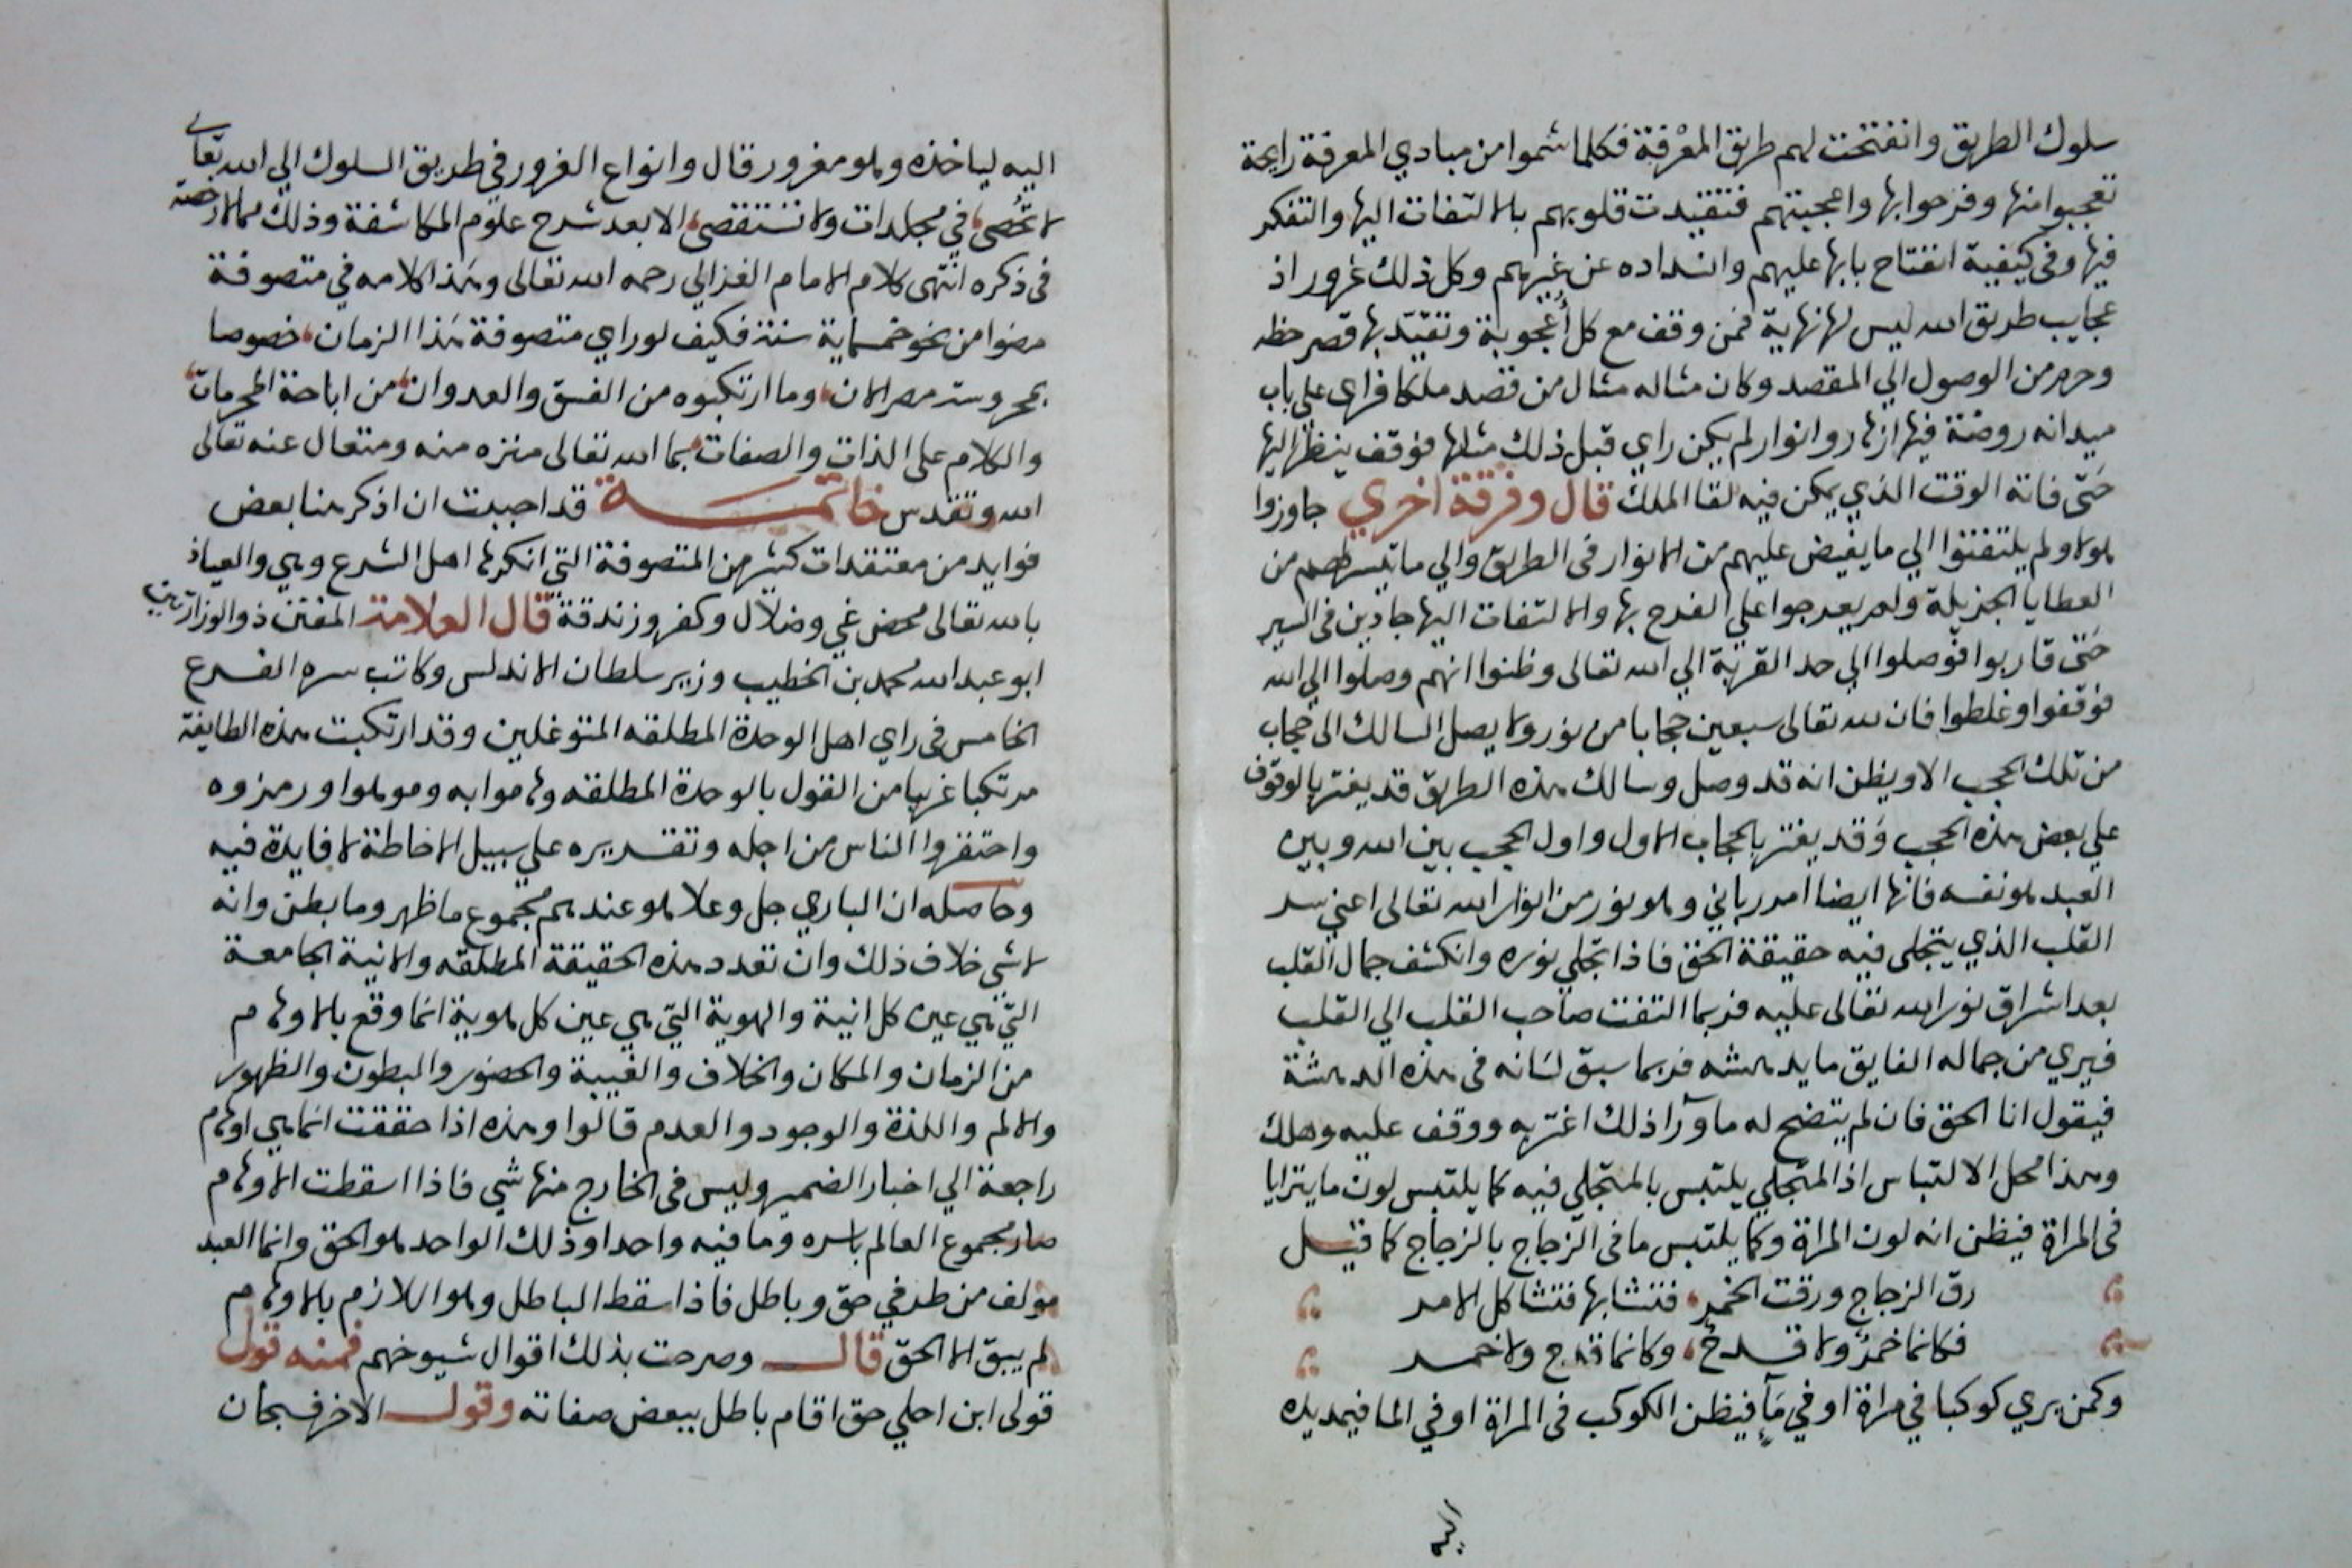 سلوك الطريق وانفتحت لهم طريق المعرفة فكلما شموا من مبادي المعرفة رايحة
تعجبوا منها وفرحوا بها واعجبتهم فتقيدت قلوبهم بالالتفات اليها والتفكر
فيها وفي كيفية انفتاح بابها عليهم وانسداده عن غيرهم وكل ذلك غرور اذ
عجايب طريق الله ليس لها نهاية فمن وقف مع كل أعجوبة وتقيد بها قصر حظه
وحرم من الوصول الي المقصد وكان مثاله مثال من قصد ملكا فراى علي باب
ميدانه روضة فيها ازهار وانوار لم يكن راي قبل ذلك مثلها فوقف ينظر اليها
حتى فاته الوقت الذي يمكن فيه لقا الملك قال وفرقة اخري جاوزوا
هولا ولم يلتفتوا الي ما يفيض عليهم من الانوار في الطريق والي ما تيسر لهم من
العطايا الجزيلة ولم يعرجوا علي الفرح بها والالتفات اليها جادين في السير
حتى قاربوا فوصلوا الي حد القربة الي الله تعالى وظنوا انهم وصلوا الي الله
فوقفوا وغلطوا فان لله تعالى سبعين حجابا من نور ولا يصل السالك الى حجاب
من تلك الحجب الا ويظن انه قد وصل وسالك هذه الطريق قد يغتر بالوقوف
علي بعض هذه الحجب وقد يغتر بالحجاب الاول واول الحجب بين الله وبين
العبد هو نفسه فانها ايضا امر رباني وهو نور من انوار الله تعالى اعني سر
القلب الذي يتجلى فيه حقيقة الحق فاذا تجلي نوره وانكشف جمال القلب
بعد اشراق نور الله تعالى عليه فربما التفت صاحب القلب الي القلب
فيري من جماله الفايق ما يدهشه فربما سبق لسانه في هذه الدهشة
فيقول انا الحق فان لم يتضح له ما ورآ ذلك اغتر به ووقف عليه وهلك
وهذا محل الالتباس اذ المتجلي يلتبس بالمتجلي فيه كما يلتبس لون ما يترايا
في المراة فيظن انه لون المراة وكما يلتبس ما في الزجاج بالزجاج كما قيل
رق الزجاج ورقت الخمر فتشابها فتشاكل الامر
فكانما خمر ولا قدح وكانما قدح ولا خمر
وكمن يري كوكبا في مراة او في مآ فيظن الكوكب في المراة او في الما فيمد يده
اليه
اليه لياخذه وهو مغرور قال وانواع الغرور في طريق السلوك الي الله تعالي
لا تحصى في مجلدات ولا تستقصى الا بعد شرح علوم المكاشفة وذلك مما لا رخصة
في ذكره انتهى كلام الامام الغزالي رحمه الله تعالى وهذا كلامه في متصوفة
مضوا من نحو خمسماية سنة فكيف لو راي متصوفة هذا الزمان خصوصا
بمحروسة مصر الان وما ارتكبوه من الفسق والعدوان من اباحة المحرمات
والكلام على الذات والصفات بما الله تعالى منزه منه ومتعال عنه تعالى
الله وتقدس خاتمة قد احببت ان اذكر هنا بعض
فوايد من معتقدات كثير من المتصوفة التي انكرها اهل الشرع وهي والعياذ
بالله تعالى محض غي وضلال وكفر وزندقة قال العلامة المفتن ذو الوزارتين
ابو عبد الله محمد بن الخطيب وزير سلطان الاندلس وكاتب سره الفرع
الخامس في راي اهل الوحدة المطلقه المتوغلين وقد ارتكبت هذه الطايفة
مرتكبا غريبا من القول بالوحدة المطلقه وهاموا به وموهوا ورمزوه
واحتقروا الناس من اجله وتقريره علي سبيل الاحاطة لا فايدة فيه
وحاصله ان الباري جل وعلا هو عندهم مجموع ما ظهر وما بطن وانه
لا شي خلاف ذلك وان تعدد هذه الحقيقة المطلقه والانية الجامعة
التي هي عين كل انية والهوية التي هي عين كل هوية انما وقع بالاوهام
من الزمان والمكان والخلاف والغيبة والحضور والبطون والظهور
والالم واللذة والوجود والعدم قالوا وهذه اذا حققت انما هي اوهام
راجعة الي اخبار الضمير وليس في الخارج منها شي فاذا اسقطت الاوهام
صار مجموع العالم باسره وما فيه واحدا وذلك الواحد هو الحق وانما العبد
مولف من طرفي حق وباطل فاذا سقط الباطل وهو اللازم بالاوهام
لم يبق الا الحق قال وصرحت بذلك اقوال شيوخهم فمنه قول
قولى ابن احلي حق اقام باطل ببعض صفاته وقول الاخر فسبحان